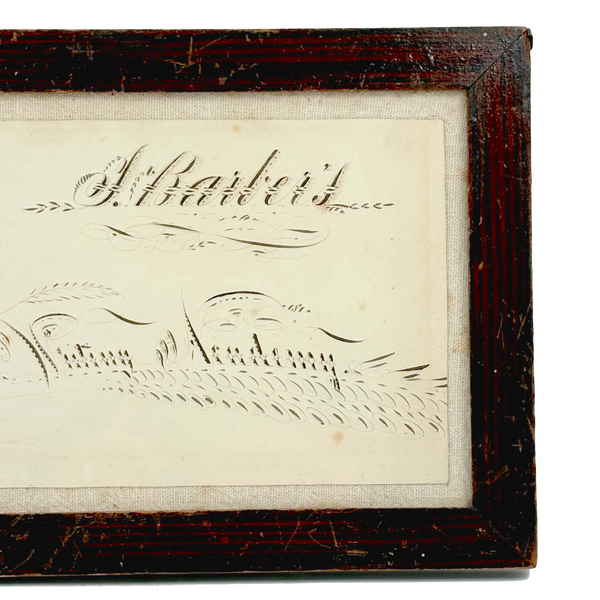 J. Barber's
Writing Academy